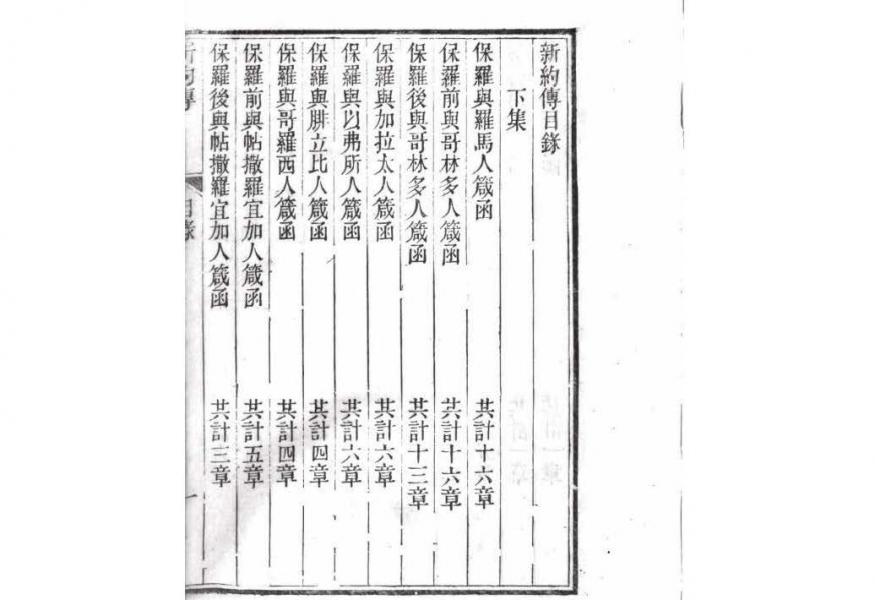 新約傳目錄
下集
保羅與羅馬人箴函 共計十六章
保羅前與哥林多人箴函 共計十六章
保羅後與哥林多人箴函 共計十三章
保羅與加拉太人箴函 共計六章
保羅與以弗所人箴函 共計六章
保羅與腓立比人箴函 共計四章
保羅與哥羅西人箴函 共計四章
保羅前與帖撒羅宜加人箴函 共計五章
保羅後與帖撒羅宜加人箴函 共計三章
新約傳 目錄 一